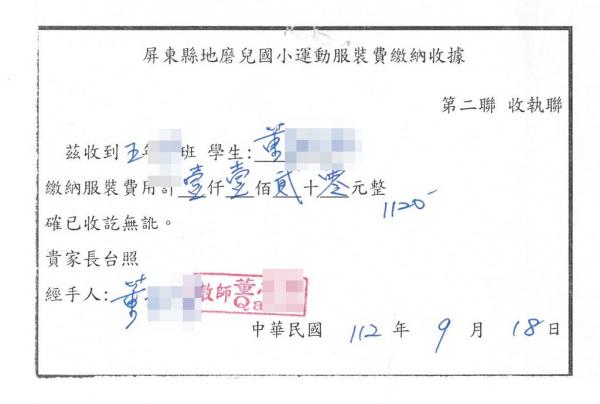 屏東縣地磨兒國小運動服裝費繳納收據
第二聯 收執聯
茲收到五年 班 學生:董
繳納服裝費用計壹仟壹佰貳十零元整
1120-
確已收訖無訛。
貴家長台照
經手人:董
教師董
Qa
中華民國 112 年 9 月 18 日